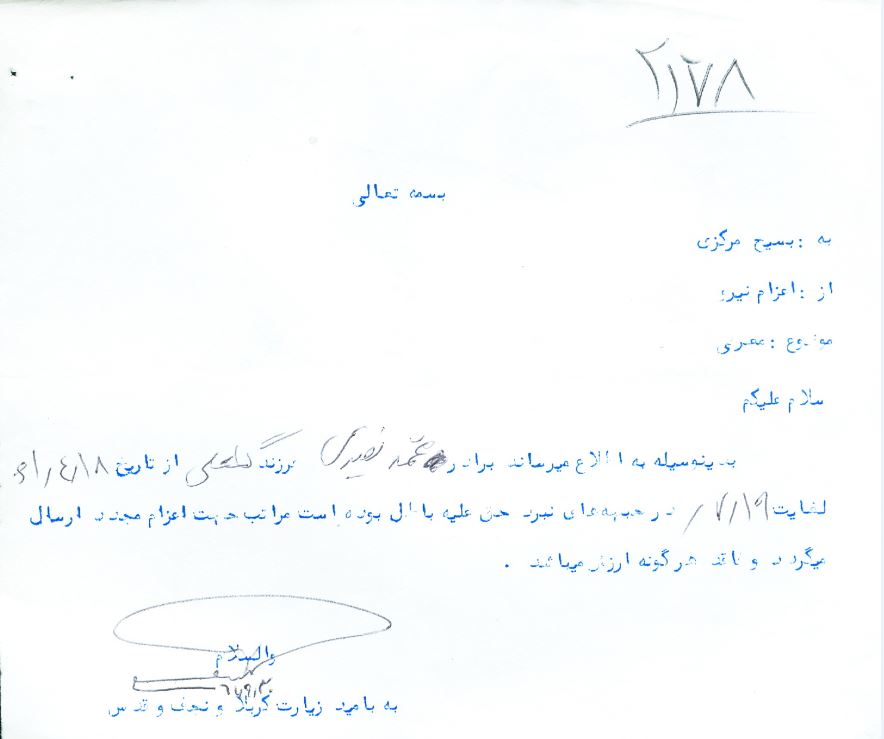 ۲۱۷۸
بسمه تعالی
به :بسیج مرکزی
از :اعزام نیرو
موضوع :معرفی
سلام علیکم
بدینوسیله به اطلاع میرساند برادر محمد نصیری فرزند از تاریخ ۶۱/۴/۱۸
لغایت ۷/۱۹/ در جبهه‌های نبرد حق علیه باطل بوده است مراتب جهت اعزام مجدد ارسال
میگردد و فاقد هرگونه ارزش میباشد .
والسلام
به بامید زیارت کربلا و نجف و قدس